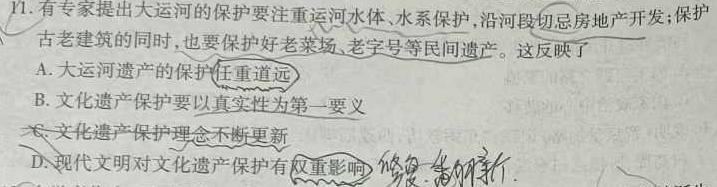 11. 有专家提出大运河的保护要注重运河水体、水系保护,沿河段切忌房地产开发;保护
古老建筑的同时,也要保护好老菜场、老字号等民间遗产。这反映了
A. 大运河遗产的保护任重道远
B. 文化遗产保护要以真实性为第一要义
C. 文化遗产保护理念不断更新
D. 现代文明对文化遗产保护有双重影响